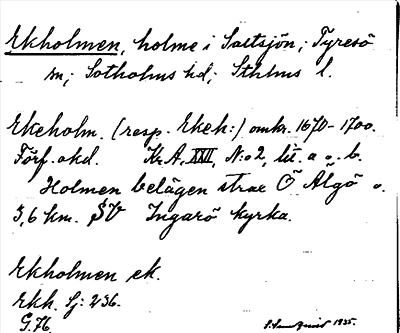 Ekholmen, holme i Saltsjön; Tyresö
sn; Sotholms hd; Sthlms l.
Ekeholm. (resp. Ekeh:) omkr. 1670-1700.
Förf. okd. Kr. A. XXII, N:o 2, lit. a o. b.
Holmen belägen strax Ö Älgö o.
3,6 km. SV Ingarö kyrka.
Ekholmen ek.
Ekh. Sj: 236.
G. 76
1935.